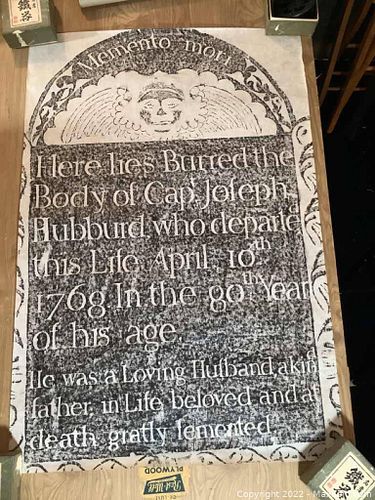 鐵谷
Memento mori
Here lies Buried the
Body of Cap. Joseph
Hubburd who departe
this Life April 10th
1768 In the 80th Year
of his age.
He was a Loving Husband a kin
father, in Life beloved and a
death gratly lemented
PLYWOOD
Copyright 2022 - Max